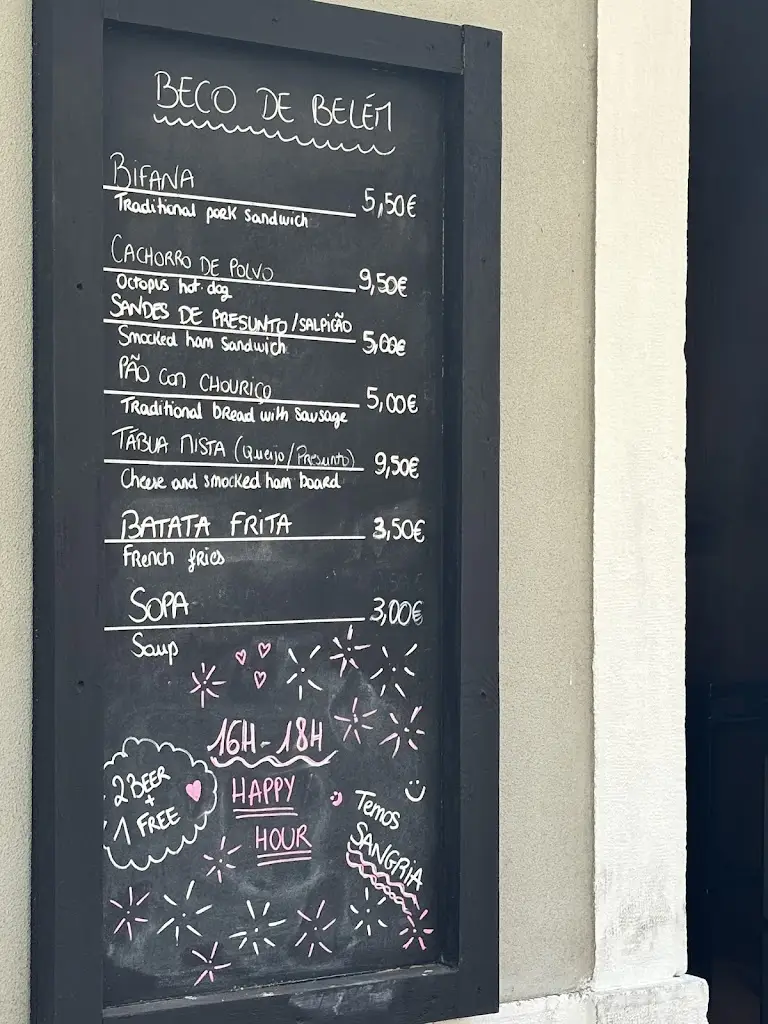 BECO DE BELÉM
BIFANA
5,50€
Traditional pork sandwich
CACHORRO DE POLVO
9,50€
Octopus hot dog
SANDES DE PRESUNTO/SALPICÃO
5,00€
Smocked ham sandwich
PÃO COM CHOURIÇO
5,00€
Traditional bread with sausage
TÁBUA MISTA (Queijo/Presunto)
9,50€
Cheese and smocked ham board
BATATA FRITA
3,50€
French fries
SOPA
3,00€
Soup
16H-18H
HAPPY
HOUR
2 BEER
+
1 FREE
Temos
SANGRIA